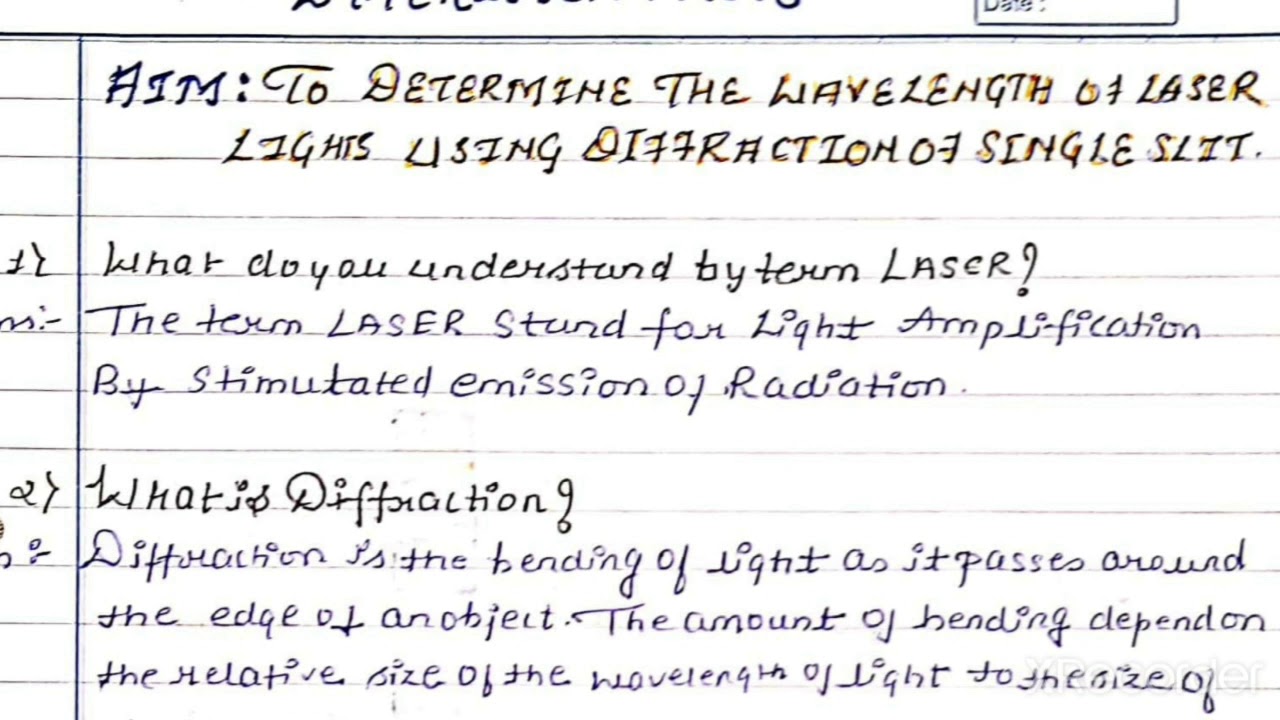 Date:
AIM: TO DETERMINE THE WAVELENGTH OF LASER
LIGHTS USING DIFFRACTION OF SINGLE SLIT.
1) What do you understand by term LASER?
ns:- The term LASER Stand for Light Amplification
By Stimutated emission of Radiation.
2) What is Diffraction?
The Diffraction is the bending of light as it passes around
the edge of an object. The amount of bending depend on
the relative size of the wavelength of light to the size of
XRecorder